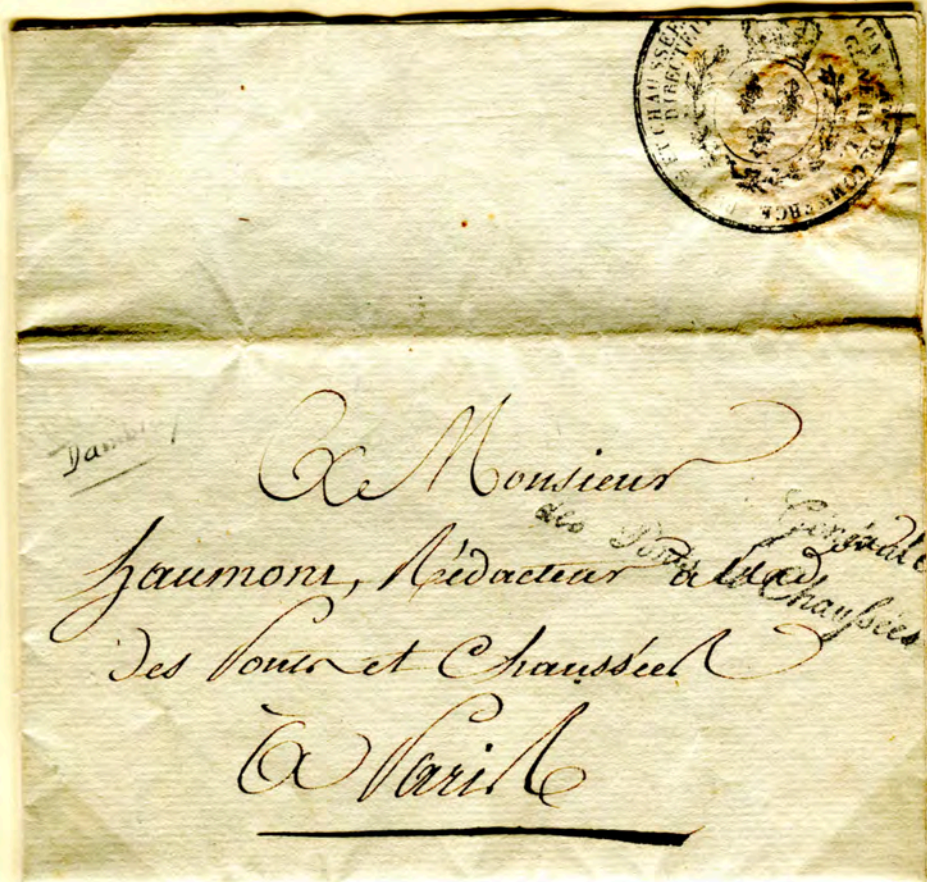 ET CHAUSSÉE
DIRECTEU
GÉNÉRAL
DE COMMERCE
A Monsieur
Générale
des Ponts et Chaussées
haumont, Rédacteur à l'ad
des Ponts et Chaussées
A Paris